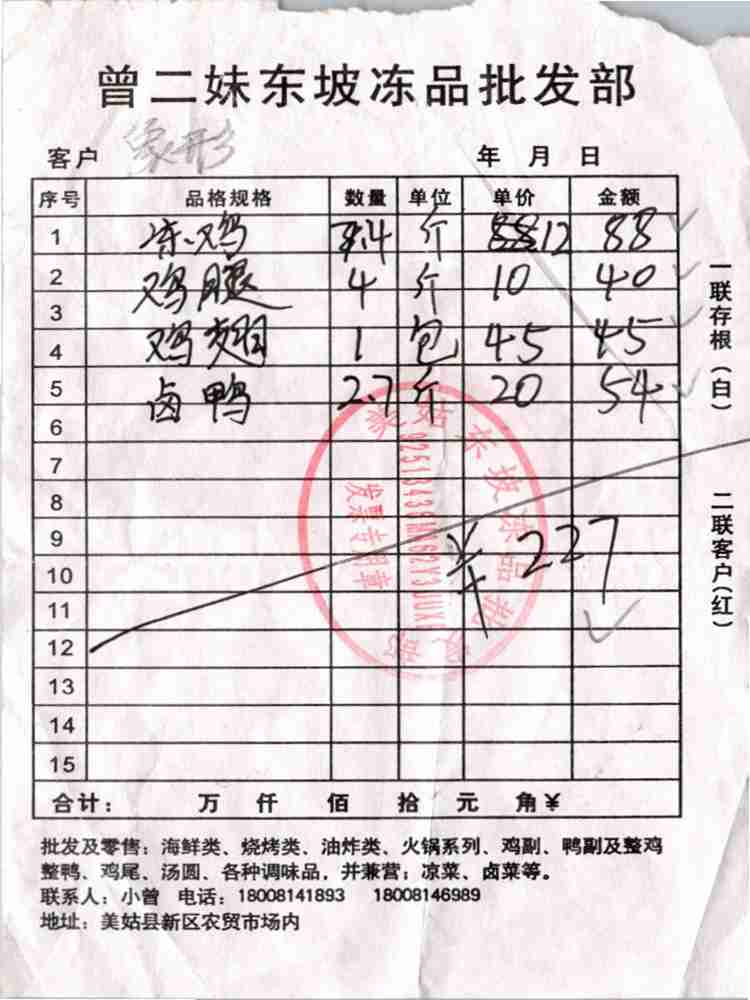 曾二妹东坡冻品批发部
客户 象形 年 月 日
序号 品格规格 数量 单位 单价 金额
1 冻鸡 7.4 斤 12 88
2 鸡腿 4 斤 10 40
3
4 鸡翅 1 包 45 45
5 卤鸭 2.7 斤 20 54
6
7
8
9 ¥227
10
11
12
13
14
15
合计: 万 仟 佰 拾 元 角¥
批发及零售:海鲜类、烧烤类、油炸类、火锅系列、鸡副、鸭副及整鸡
整鸭、鸡尾、汤圆、各种调味品,并兼营:凉菜、卤菜等。
联系人:小曾 电话:18008141893 18008146989
地址:美姑县新区农贸市场内
一联存根(白)
二联客户(红)
发票专用章